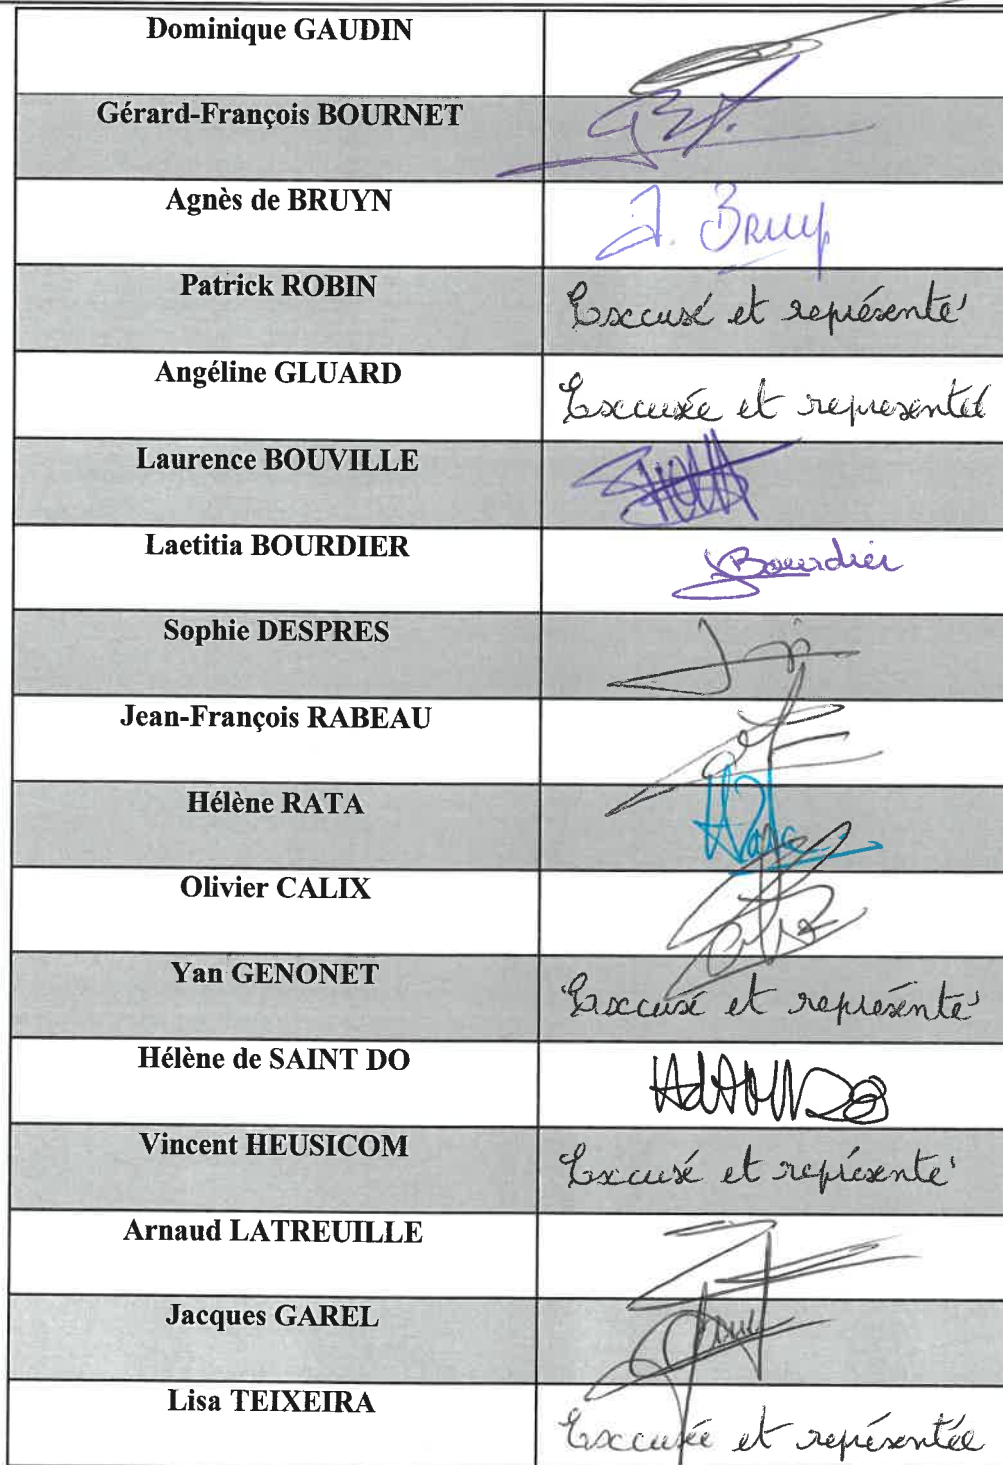 Dominique GAUDIN
Gérard-François BOURNET
Agnès de BRUYN
A. Bruyn
Patrick ROBIN
Excusé et représenté
Angéline GLUARD
Excusée et representée
Laurence BOUVILLE
Laetitia BOURDIER
Bourdier
Sophie DESPRES
Jean-François RABEAU
Hélène RATA
HRata
Olivier CALIX
Yan GENONET
Excusé et représenté
Hélène de SAINT DO
Vincent HEUSICOM
Excusé et représenté
Arnaud LATREUILLE
Jacques GAREL
Lisa TEIXEIRA
Excusée et représentée